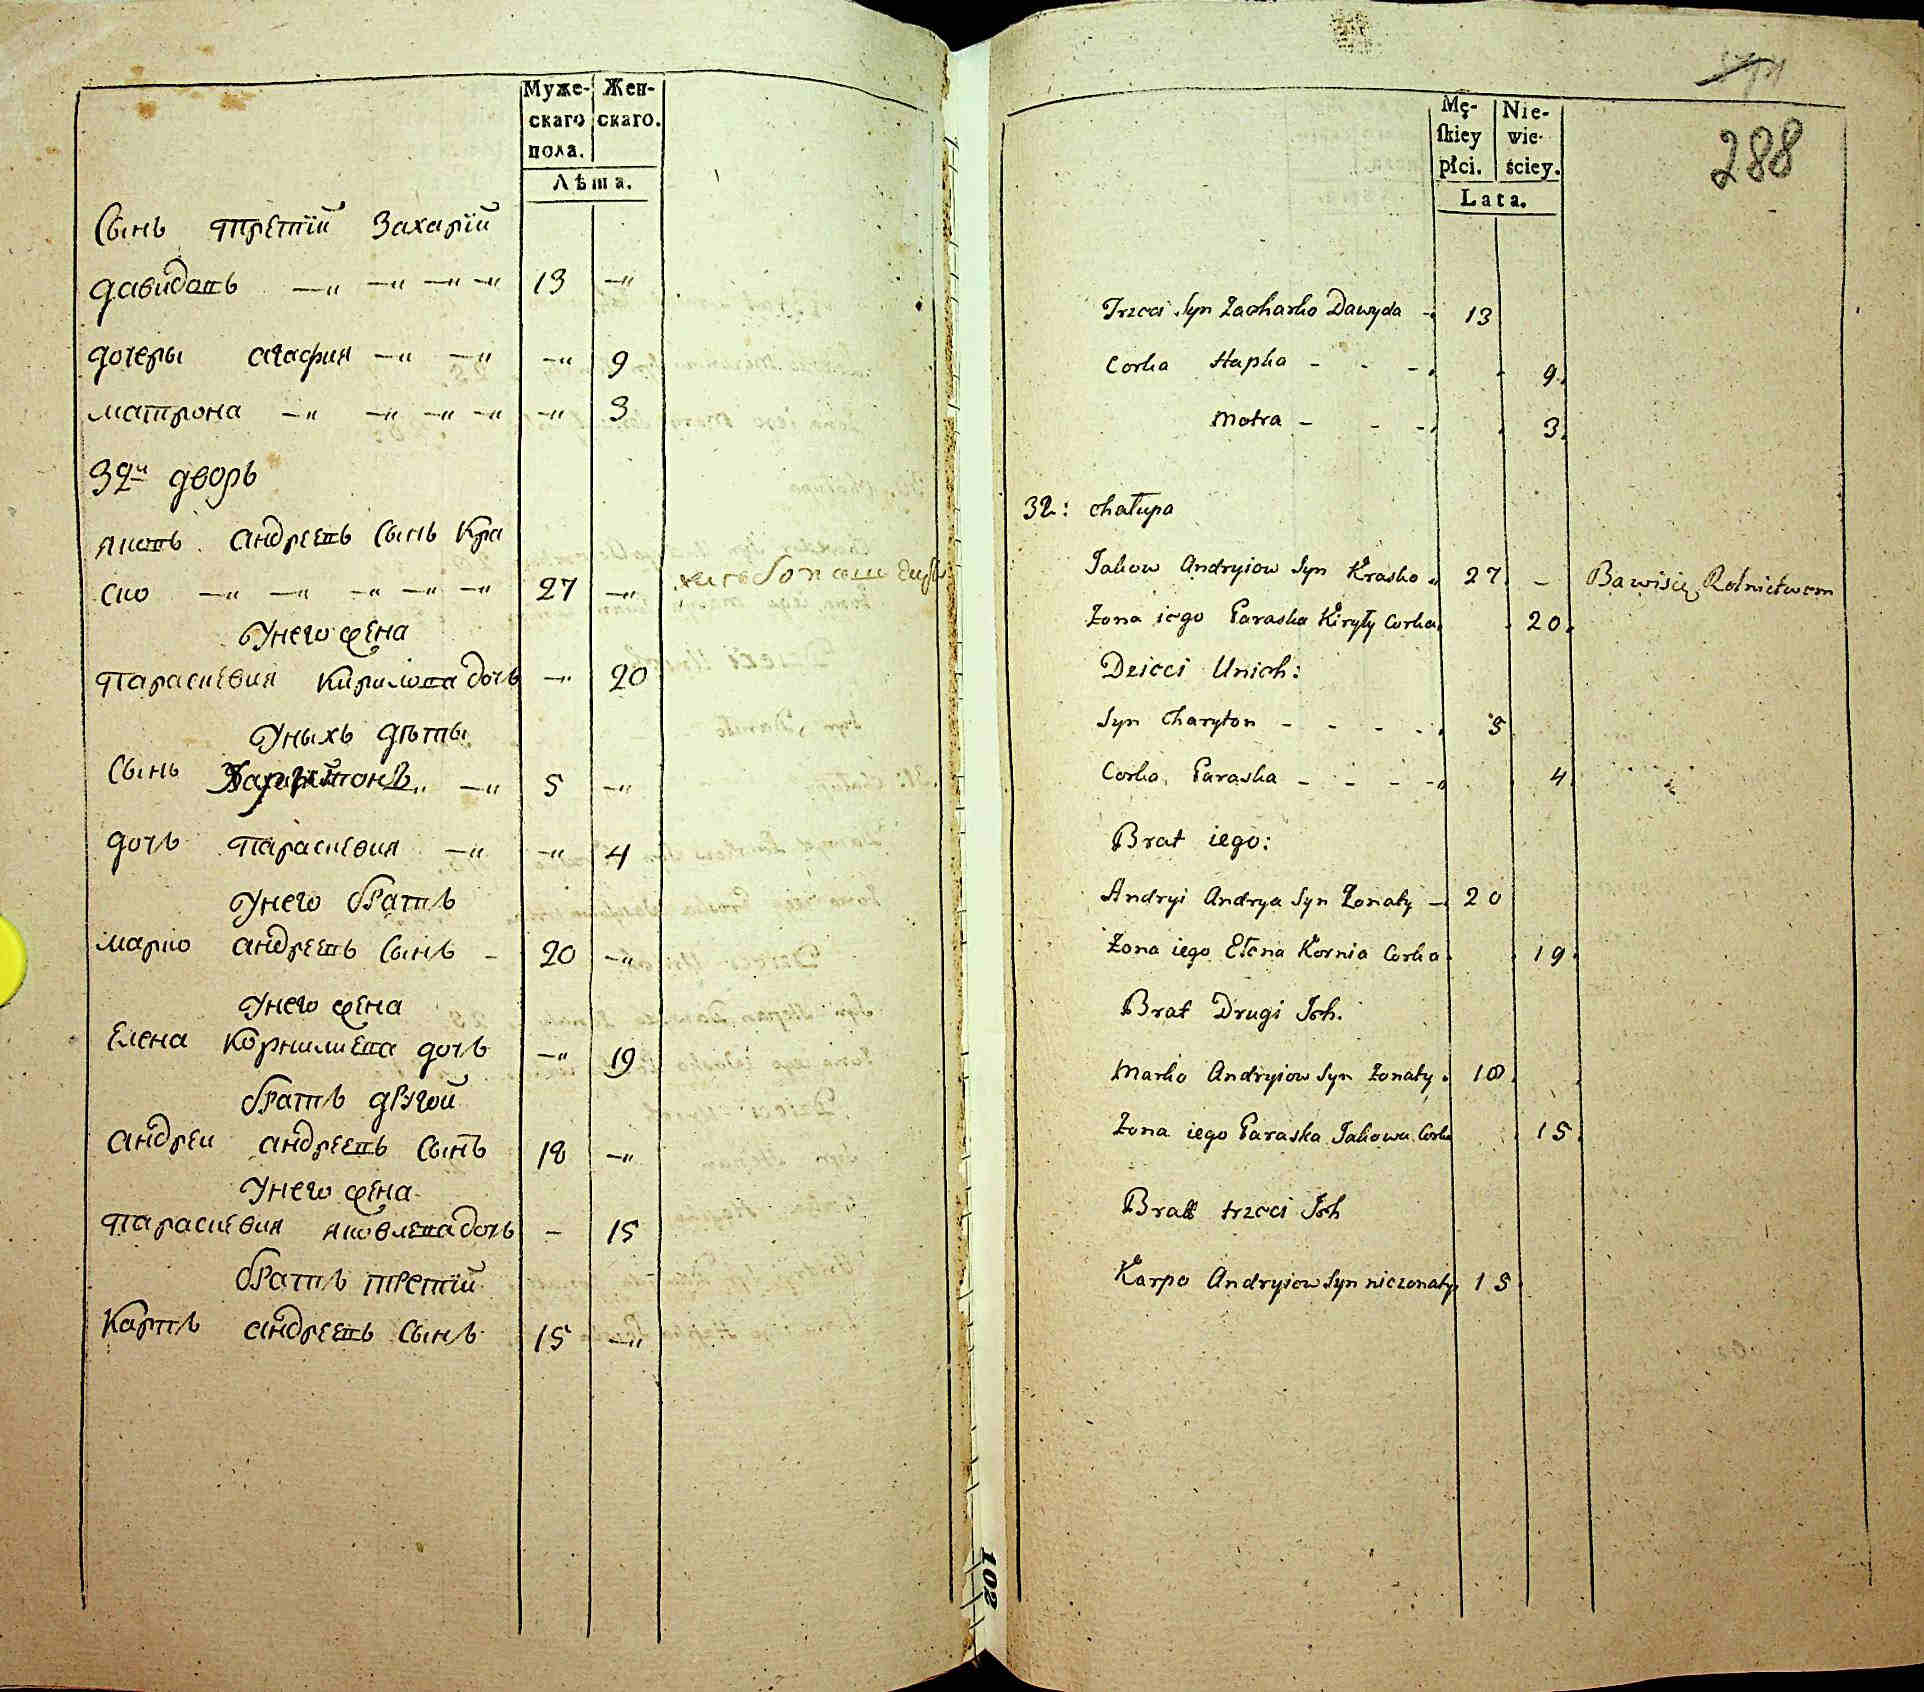 Муже-
скаго
пола.
Жен-
скаго.
Лѣта.
Сынъ третїй Захарїй
давидовъ —„ —„ —„ —„ 13 —„
дочеры агафия —„ —„ —„ 9
матрона —„ —„ —„ —„ —„ 3
32й дворъ
яковъ андреевъ Сынъ Кра
ско —„ —„ —„ —„ —„ 27 —„
Унего жена
Параскевия Кирилова дочь —„ 20
Уныхъ дѣты
Сынъ Харитонъ —„ 5 —„
дочь Параскевия —„ —„ 4
Унего братъ
марко андреевъ Сынъ - 20 —„
Унего жена
Елена Корнилиева дочь —„ 19
братъ другой
андреи андреевъ Сынъ 18 —„
Унего жена
Параскевия яковлева дочь — 15
братъ третїй
Карпъ андреевъ Сынъ 15 —„
102
288
Mę-
ſkiey
płci.
Nie-
wie-
ściey.
Lata.
Trzeci Syn Zacharko Dawyda - 13
Corka Hapka - - - 9.
Motra - - - 3.
32: chałupa
Jakow Andryiow Syn Krasko 27. - Bawisię Rolnictwem
Żona iego Paraska Kiryły Corka 20.
Dzieci Unich:
Syn Charyton - - - - 5
Corka Paraska - - - - 4
Brat iego:
Andryi Andrya Syn Żonaty - 20
Żona iego Ełena Kornia Corka 19.
Brat Drugi Ich.
Marko Andryiow Syn Żonaty. 18.
Żona iego Paraska Jakowa Corka 15.
Brat trzeci Ich
Karpo Andryiow Syn nieżonaty 15.